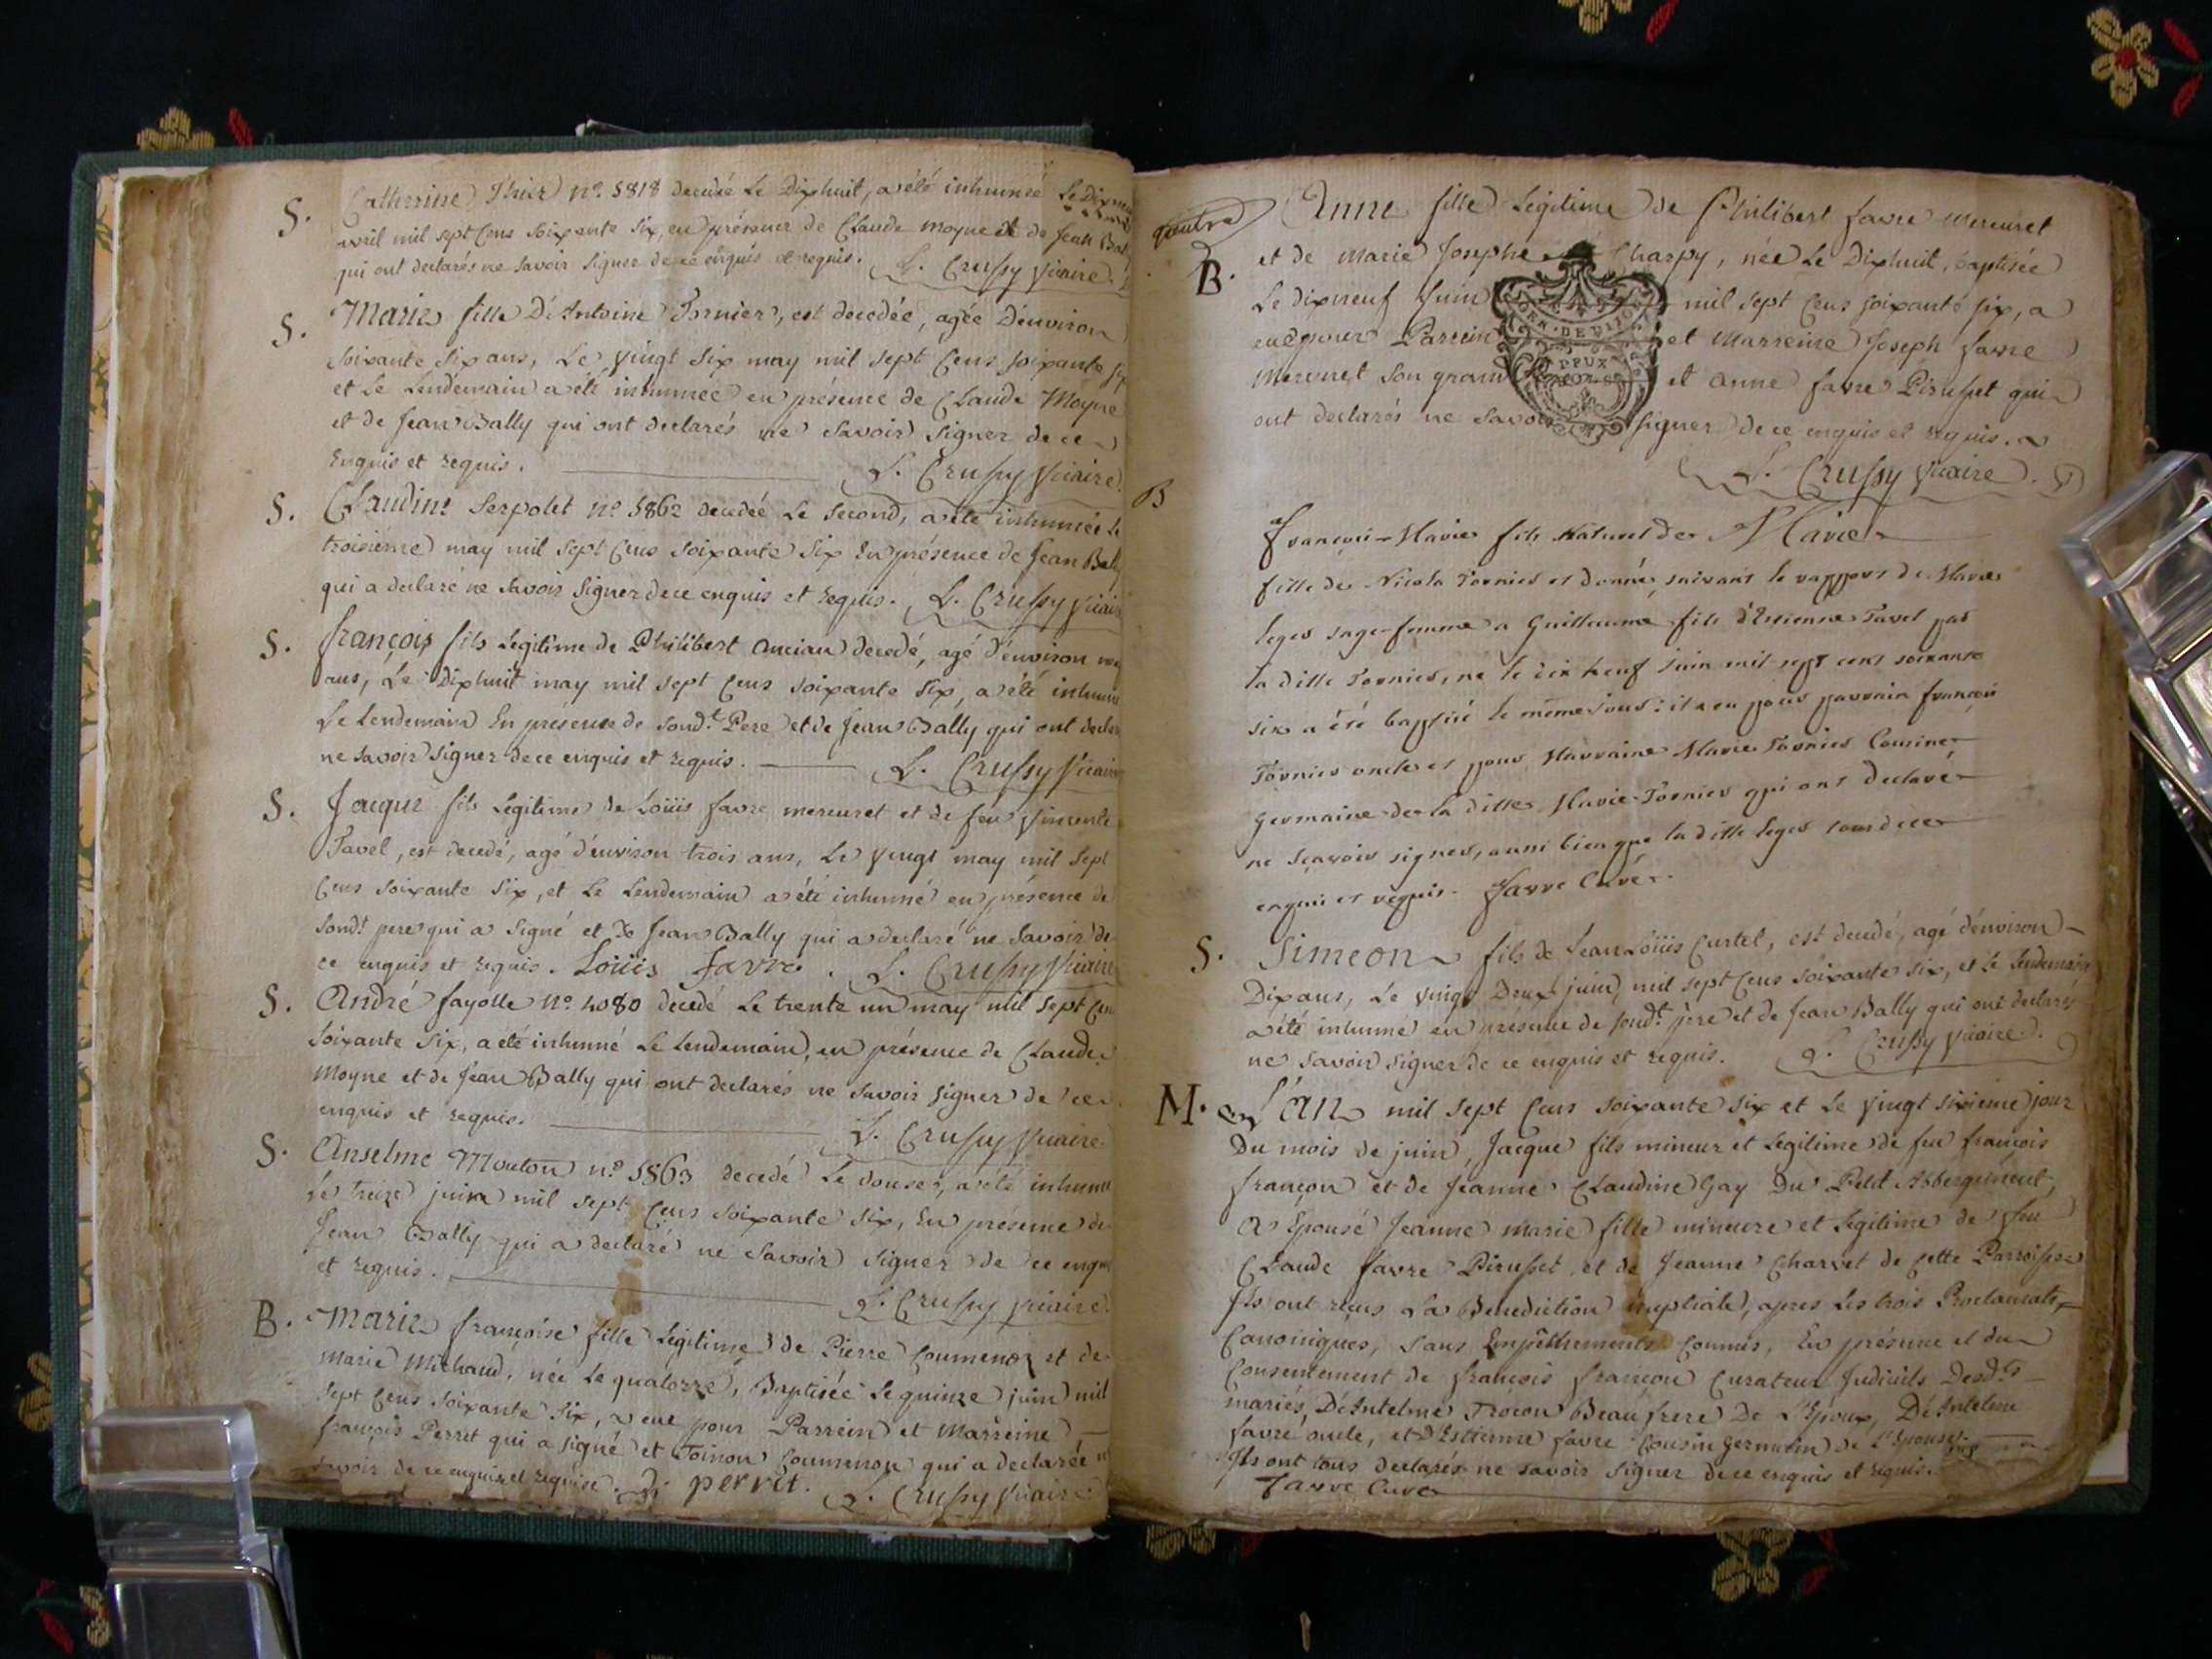 S. Catherine Thier no. 5818 decedée Le Dixhuit, a été inhumée Le Dixneuf
avril mil sept Cens Soixante Six, en présence de Claude moyne et de Jean Bally
qui ont declarés ne savoir Signer de ce enquis et requis. L. Crussy Vicaire.
S. Marie fille D'Antoine Tornier, est decedée, agée D'environ
Soixante Six ans, Le Vingt Six may mil Sept Cens Soixante Six
et Le Lendemain a été inhumée en présence de Claude Moyne
et de Jean Bally qui ont declarés ne Savoir Signer de ce
Enquis et requis. L. Crussy Vicaire.
S. Claudine Serpolet no. 5862 decedée Le Second, a été inhumée Le
troisième may mil Sept Cens Soixante Six En présence de Jean Bally
qui a declaré ne Savoir Signer de ce enquis et requis. L. Crussy Vicaire
S. François fils Legitime de Philibert Ancian decedé, agé D'environ
ans, Le Dixhuit may mil Sept Cens Soixante Six, a été inhumé
Le Lendemain En présence de Sond.t Pere et de Jean Bally qui ont declarés
ne Savoir Signer de ce enquis et requis. L. Crussy Vicaire
S. Jacque fils Legitime de Loüis favre mercuret et de feu Vincente
Tavel, est decedé, agé d'environ trois ans, Le Vingt may mil Sept
Cens Soixante Six, et Le Lendemain a été inhumé en présence de
Sond.t pere qui a Signé et De Jean Bally qui a declaré ne Savoir de
ce enquis et requis. Loüis favre. L. Crussy Vicaire
S. André fayolle no. 4080 decedé Le trente un may mil Sept Cens
Soixante Six, a été inhumé Le Lendemain, en présence de Claude
Moyne et de Jean Bally qui ont declarés ne Savoir Signer de ce
enquis et requis. L. Crussy Vicaire
S. Anselme Mouton no. 5863 decedé Le douse, a été inhumé
Le treize juin mil Sept Cens Soixante Six, En présence de
Jean Bally qui a declaré ne Savoir Signer de ce enquis
et requis. L. Crussy Vicaire.
B. Marie françoise fille Legitime de Pierre Coumenoz et de
Marie Michaud, née Le quatorze, Baptisée Le quinze juin mil
Sept Cens Soixante Six, a eue pour Parrein et Marreine
françois Perret qui a signé et Toinon Coummon qui a declarée ne
Savoir de ce enquise et requise. perret. L. Crussy Vicaire
Anne fille Legitime de Philibert favre Mercuret
B. et de Marie Josephe Charpy, née Le Dixhuit, baptisée
Le dixneuf Juin mil sept Cens Soixante Six, a
eue pour Parrein et Marreine Joseph favre
Mercuret Son grand et Anne favre Pirusset qui
GEN. DE DIJON
DEUX
ont declarés ne Savoir Signer de ce enquis et requis.
L. Crussy Vicaire.
B
françois-Marie fils naturel de Marie
fille de Nicola Tornier et donné, suivant le rapport de Marie
leger sage-femme a Guillaume fils d'Etienne Tavel par
la ditte Tornier, ne le dix neuf juin mil sept cent soixante
six a été baptisé le même jour: il a eu pour parrain françois
Tornier oncle et pour Marraine Marie Tornier Cousine
germaine de la ditte Marie Tornier qui ont declaré
ne sçavoir signer, aussi bien que la ditte leger tous de ce
enquis et requis. favre Curé.
S. Simeon fils de Jean Loüis Curtet, est decedé, agé d'environ
Dix ans, Le vingt Deux juin, mil sept Cens Soixante Six, et Le Lendemain
a été inhumé en présence de Sond.t pere et de Jean Bally qui ont declarés
ne Savoir Signer de ce enquis et requis. L. Crussy Vicaire.
M. L'an mil Sept Cens Soixante Six et Le Vingt Sixieme jour
Du mois de juin, Jacque fils mineur et Legitime de feu françois
françon et de Jeanne Claudine Gay Du Petit Abbergement,
a Epousé Jeanne Marie fille mineure et Legitime de feu
Claude favre Pirusset et de Jeanne Charvet de Cette Parroisse
Ils ont reçus La Benediction nuptiale, apres Les trois Proclamats
Canoniques, Sans Empêchements Connus, En présence et du
Consentement de françois françon Curateur Desd.ts
mariés, D'Antelme Beaufrere De L'Epoux, D'Antelme
favre oncle, et D'Estienne favre Cousin germain de L'Epouse
Ils ont tous declarés ne savoir Signer de ce enquis et requis.
favre Curé